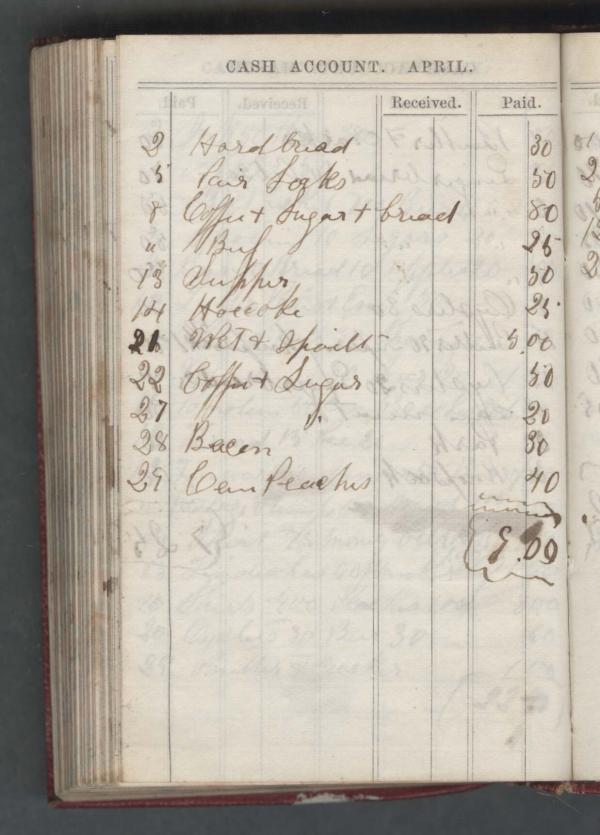 CASH ACCOUNT. APRIL.
Received. Paid.
2 Hard bread 30
5 Pair Socks 50
8 Coffee + Sugar + bread 80
" 25
13 Supper 50
14 25
21 5.00
22 Coffee + Sugar 50
27 " 20
28 Bacon 30
29 Can Peaches 40
9.00